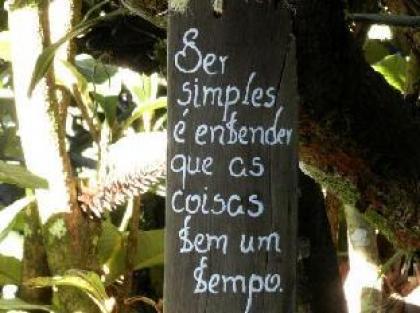 Ser
simples
é entender
que as
coisas
tem um
tempo.